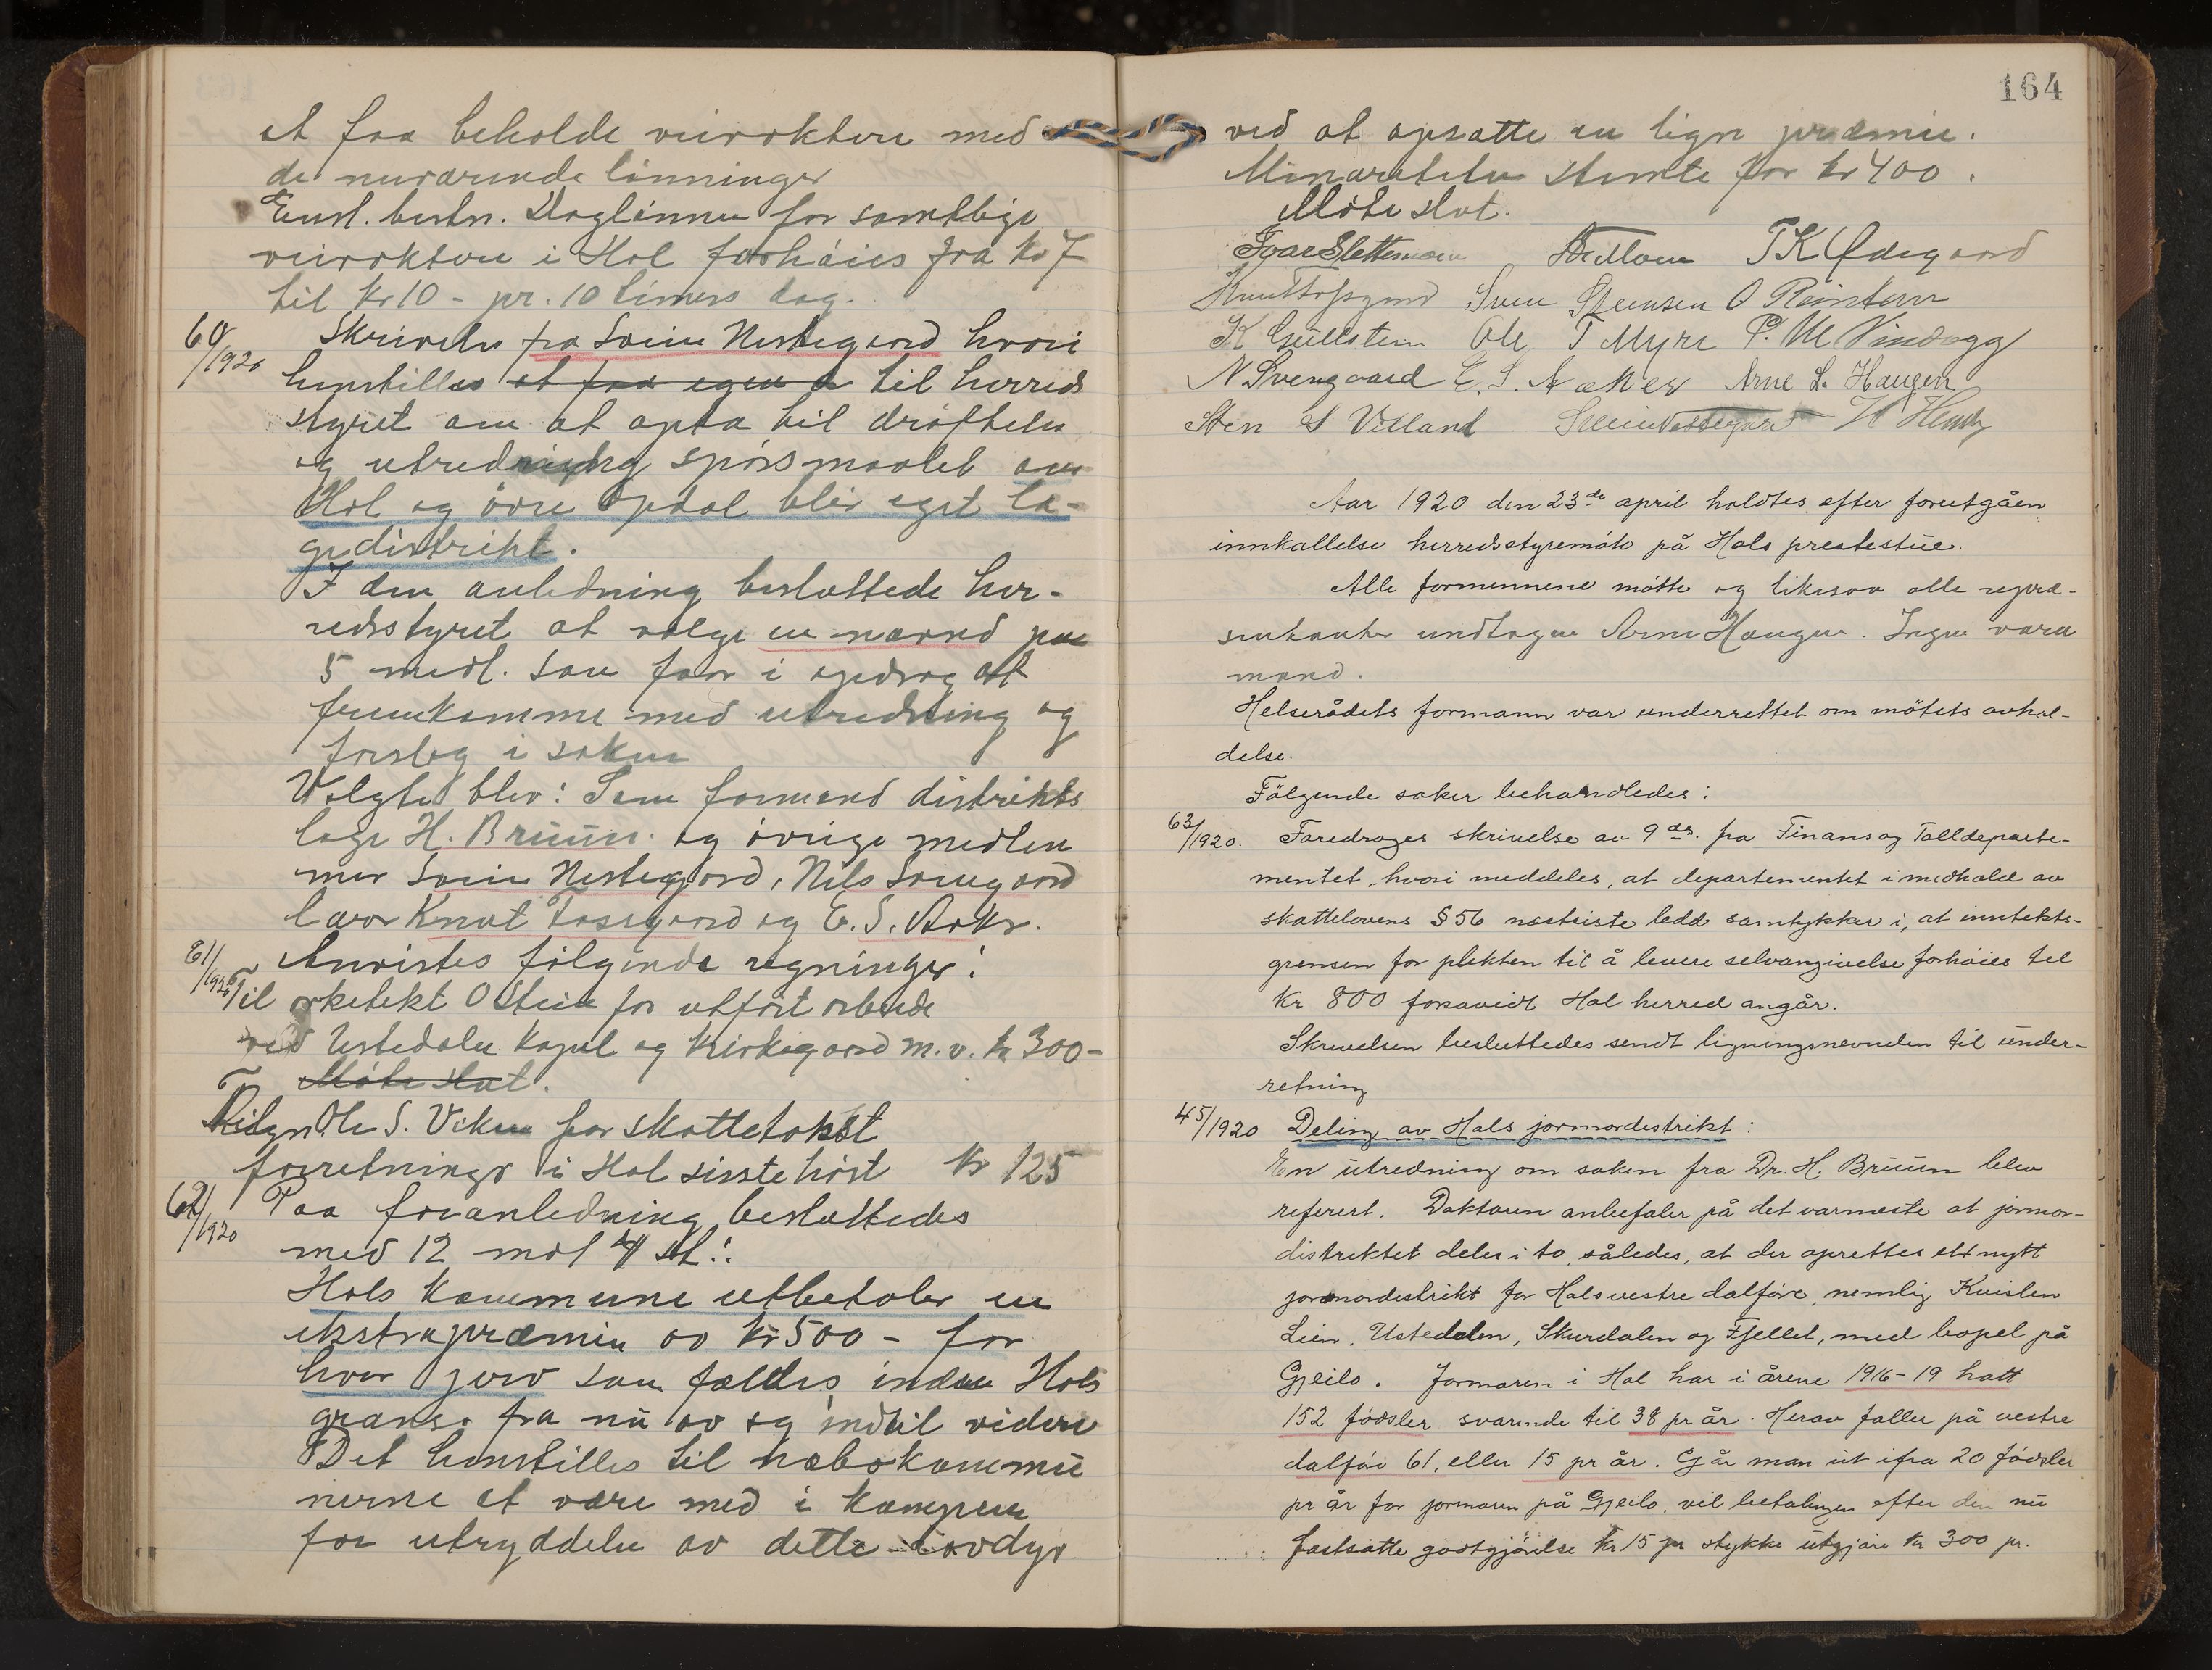 at faa beholde veivoktere med
de nuværende lönninger
Enst. besln. Daglönnen for samtlige
veivoktere i Hol forhöies fra kr 7
til kr 10 - pr. 10 timers dag.
60/1920 Skrivelse fra Svein Nestegaard hvori
henstilles at faa egen d til herreds
styret om at opta til dröftelse
og utredning spörsmaalet om
Hol og övre Opdal blir eget læ-
gedistrikt.
I den anledning besluttede her-
redsstyret at vælge en nævnd paa
5 medl. som faar i opdrag at
fremkomme med utredning og
forslag i saken
Valgte blev: Som formand distrikts
læge H. Bruun og övrige medlem
mer Svein Nestegaard, Nils Svengaard
lærer Knut Tossegaard og E. S. Aaker.
61/1920 Anvistes fölgende regninger:
Til arkitekt O Stein for utfört arbeide
ved Ustedalen kapel og kirkegaard m.v. kr 300-
Möte slut.
Ole S. Viken for skattetakst
forretninger i Hol sisste höst kr 125
62/1920 Paa foranledning besluttedes
med 12 mot 4 st.:
Hols kommune utbetaler en
ekstrapræmie av kr 500 - for
hver jerv som fældes inden Hols
grænse fra nu av og indtil videre
Det henstilles til nabokommu
nerne at være med i kampen
for utryddelse av dette rovdyr
164
ved at opsætte en lign præmie.
Minoriteten stemte for kr 400.
Möte slut.
Ivar Slettemoen TK Ödegaard
Knut Tossgaard Sven Svensen O Reinton
K Gullsten Ole T Myre P. M Vindegg
N Svengaard E. S. Aaker Arne L. Haugen
Sten S Villand Svein Nestegard
Aar 1920 den 23de april holdtes efter forutgåen
innkallelse herredsstyremöte på Hols prestestue.
Alle formennene mötte og likesaa alle repræ-
sentanter undtagen Arne Haugen. Ingen vara
mand.
Helserådets formann var underrettet om mötets avhol-
delse.
Fölgende saker behandledes:
63/1920. Foredroges skrivelse av 9 ds. fra Finans og Tolldeparte-
mentet, hvori meddeles, at departementet i medhold av
skattelovens § 56 nestsiste ledd samtykker i, at inntekts-
grensen for plikten til å levere selvangivelse forhöies til
kr 800 forsavidt Hol herred angår.
Skrivelsen besluttedes sendt ligningsnevnden til under-
retning
45/1920 Deling av Hols jormordistrikt:
En utredning om saken fra Dr. H. Bruun blev
referert. Doktoren anbefaler på det varmeste at jormor-
distriktet deles i to, således, at der oprettes ett nytt
jormordistrikt for Hols vestre dalföre, nemlig Kvislen
Lien, Ustedalen, Skurdalen og Fjellet, med bopel på
Gjeilo. Jormoren i Hol har i årene 1916-19 hatt
152 födsler svarende til 38 pr år. Herav faller på vestre
dalföre 61, eller 15 pr år. Går man ut ifra 20 födsler
pr år for jormoren på Gjeilo, vil betalingen efter den nu
fastsatte godtgjörelse kr 15 pr stykke utgjöre kr 300 pr.